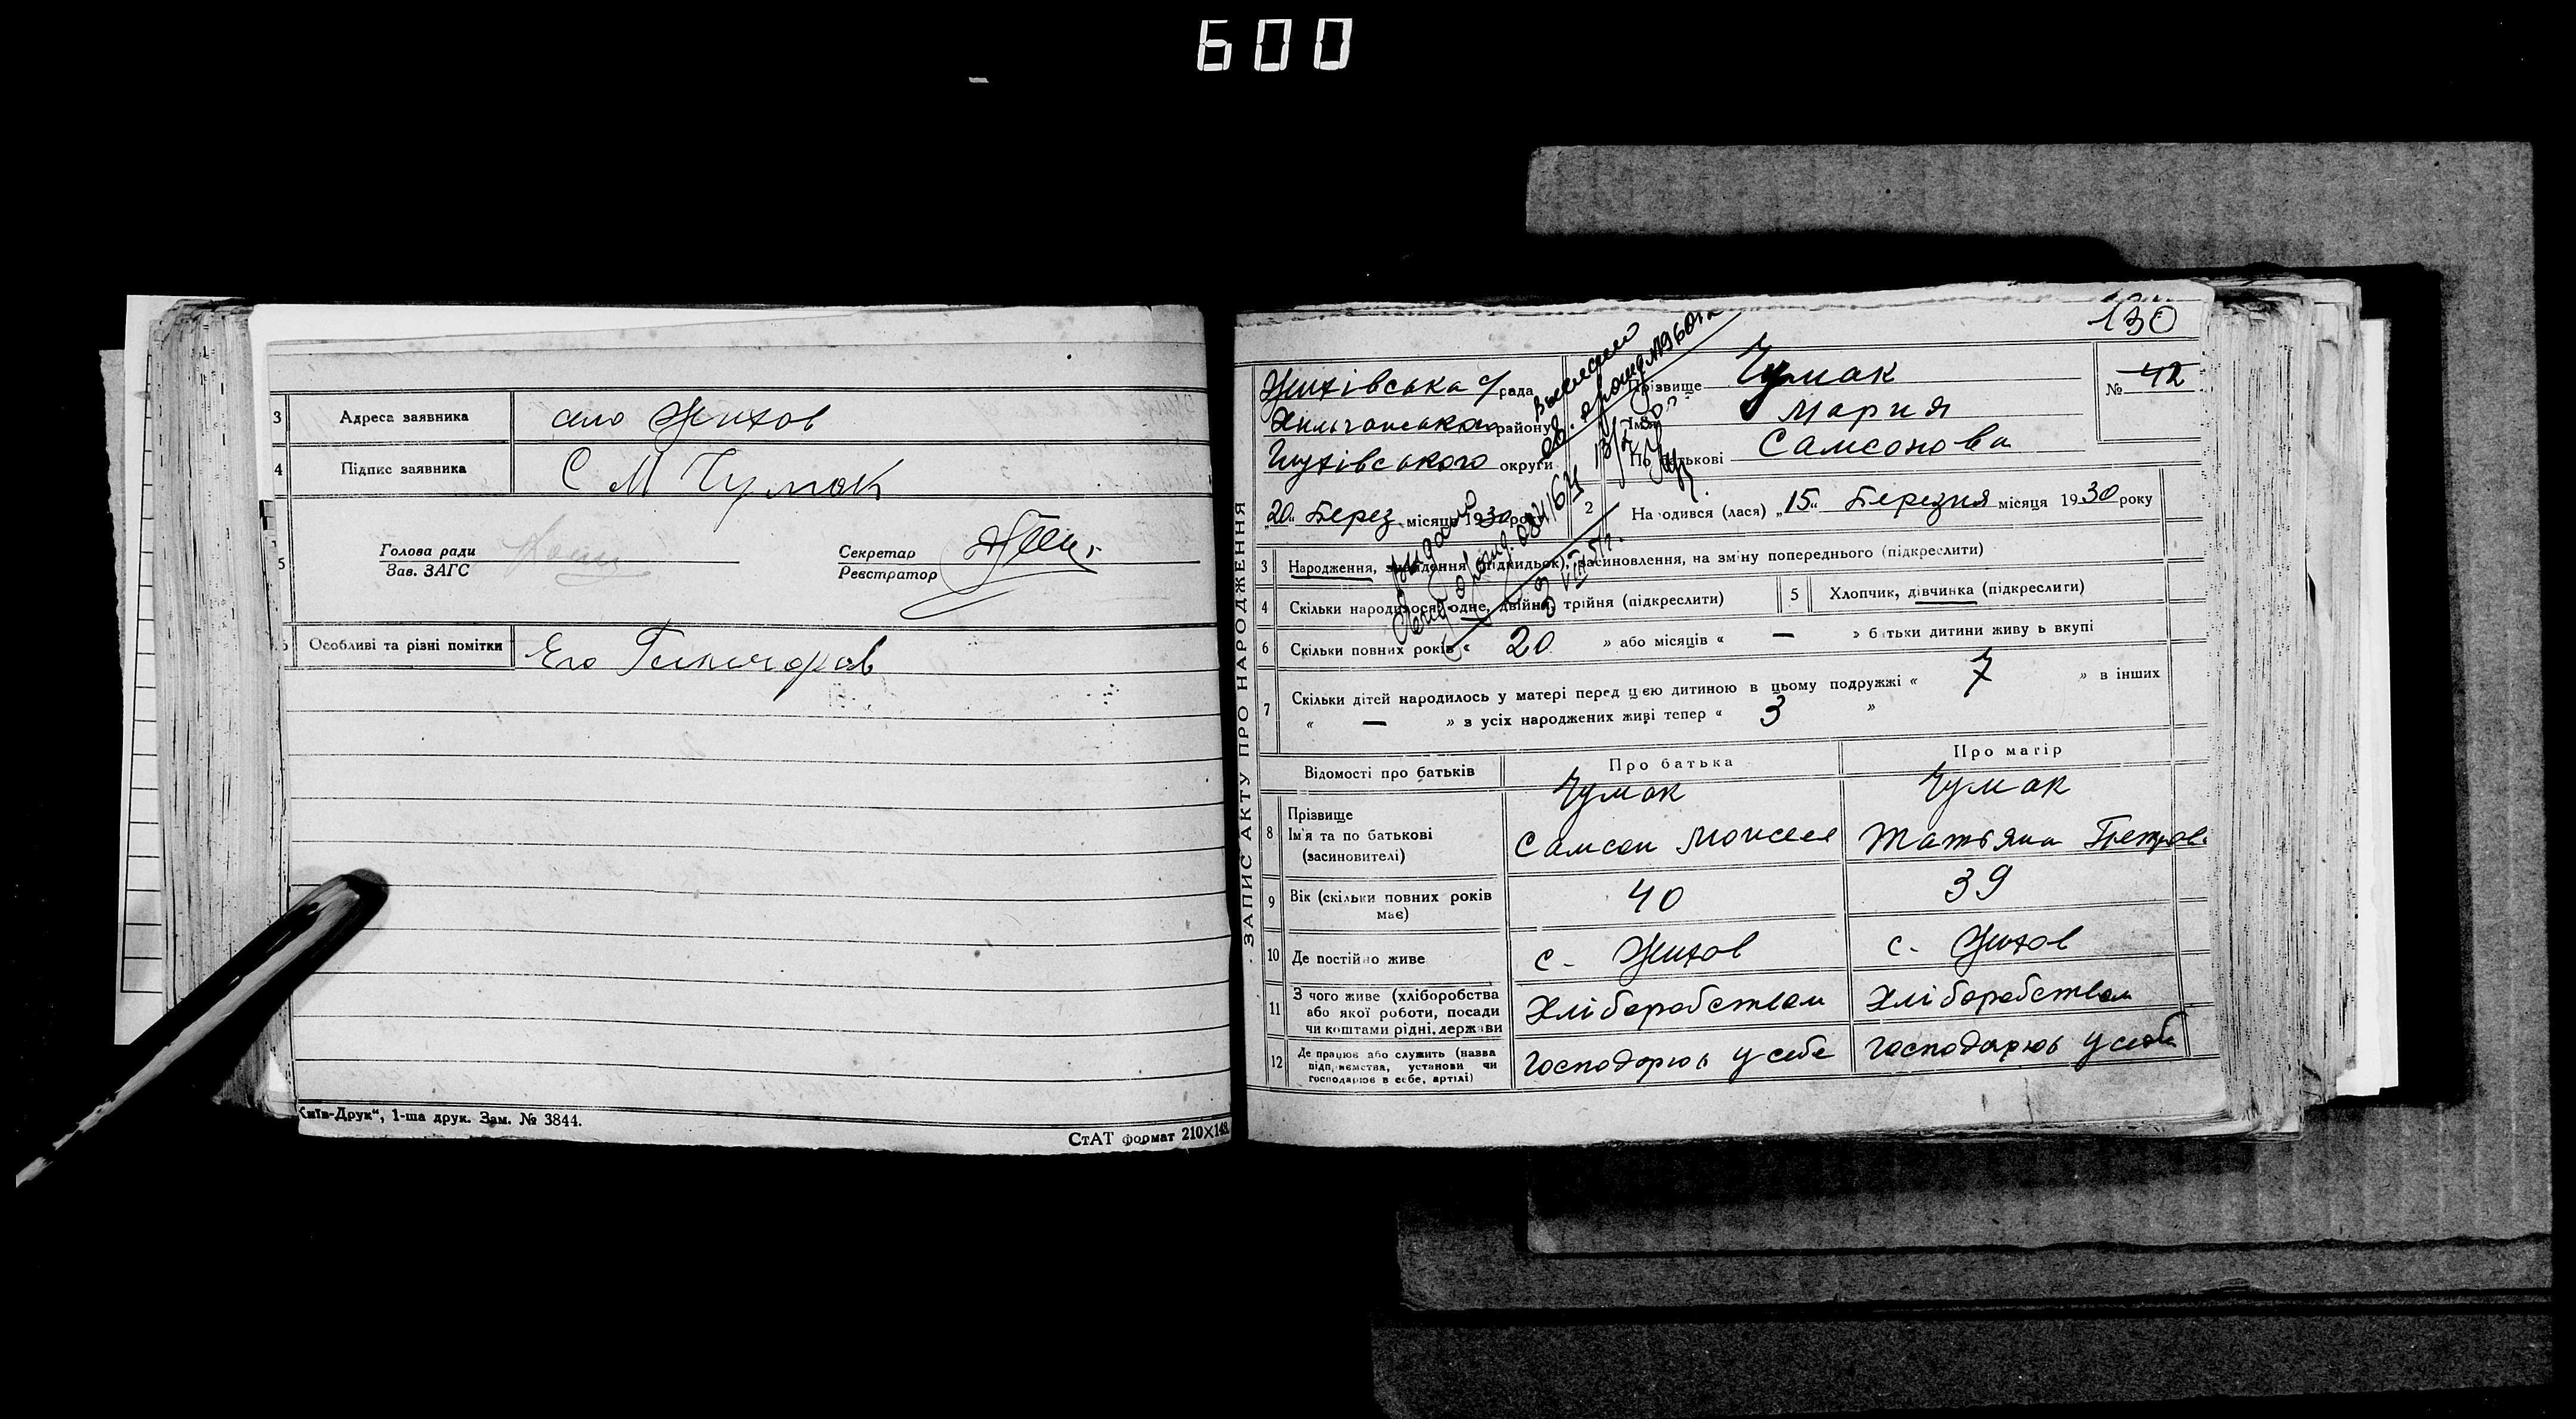 600
3 Адреса заявника село Жихов
4 Підпис заявника С М Чумак
5 Голова ради
Зав. ЗАГС
Секретар
Реєстратор
Особливі та різні помітки Его
Київ-Друк", 1-ша друк. Зам. № 3844.
СтАТ формат 210×148.
130
ЗАПИС АКТУ ПРО НАРОДЖЕННЯ
Жихівська с/рада
району
округи
„20" Берез місяця 1930 року
Прізвище Чумак
Ім'я Мария
По батькові Самсонова
№ 42
2 Народився (лася) „15" Березня місяця 1930 року
3 Народження, (підкидьок), засиновлення, на зміну попереднього (підкреслити)
4 Скільки народилося: одне, двійня, трійня (підкреслити)
5 Хлопчик, дівчинка (підкреслити)
6 Скільки повних років « 20 » або місяців « — » батьки дитини живуть вкупі
7 Скільки дітей народилось у матері перед цією дитиною в цьому подружжі « 7 » в інших
« — » з усіх народжених живі тепер « 3 »
Відомості про батьків Про батька Про матір
8 Прізвище
Ім'я та по батькові
(засиновителі)
Чумак
Самсон Моисеев
Чумак
Татьяна Петров.
9 Вік (скільки повних років має) 40 39
10 Де постійно живе с. Жихов с. Жихов
11 З чого живе (хліборобства
або якої роботи, посади
чи коштами рідні, держави
Хліборобством Хліборобством
12 Де працює або служить (назва
підприємства, установи чи
господарює в себе, артілі)
господарює у себе господарює у себе